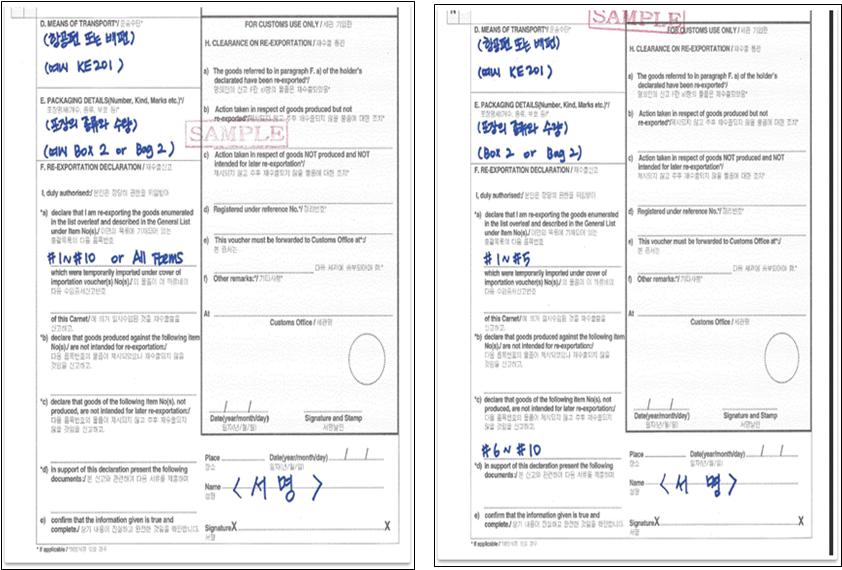 D. MEANS OF TRANSPORT*/ 운송수단*
(항공편 또는 배편)
(예시 KE201)
E. PACKAGING DETAILS(Number, Kind, Marks etc.)*/
포장명세(개수, 종류, 부호 등)*
(포장의 종류와 수량)
(예시 Box 2 or Bag 2)
F. RE-EXPORTATION DECLARATION / 재수출신고
I, duly authorised:/ 본인은 정당히 권한을 위임받아
*a) declare that I am re-exporting the goods enumerated
in the list overleaf and described in the General List
under Item No(s)./ 이면의 목록에 기재되어 있는
총괄목록의 다음 품목번호
#1~#10 or All Items
which were temporarily imported under cover of
importation voucher(s) No(s)./ 의 물품이 이 까르네의
다음 수입증서신고번호
of this Carnet/ 에 의거 일시수입된 것을 재수출함을
신고하고,
*b) declare that goods produced against the following item
No(s)./ are not intended for re-exportation:/
다음 품목번호의 물품이 제시되었으나 재수출되지 않을
것임을 신고하고,
*c) declare that goods of the following item No(s), not
produced, are not intended for later re-exportation:/
다음 품목번호의 물품이 제시되지 않고 추후 재수출되지
않을 것임을 신고하고,
*d) in support of this declaration present the following
documents:/ 본 신고와 관련하여 다음 서류를 제출하며
e) confirm that the information given is true and
complete./ 상기 내용이 진실하고 완전한 것임을 확인합니다.
* If applicable /
FOR CUSTOMS USE ONLY / 세관 기입란
H. CLEARANCE ON RE-EXPORTATION / 재수출 통관
a) The goods referred to in paragraph F. a) of the holder's
declared have been re-exported*/
명의인의 신고 F란 a)항의 물품은 재수출되었음*
b) Action taken in respect of goods produced but not
re-exported*/ 제시되지 않고 추후 재수출되지 않을 물품에 대한 조치*
SAMPLE
c) Action taken in respect of goods NOT produced and NOT
intended for later re-exportation*/
제시되지 않고 추후 재수출되지 않을 물품에 대한 조치*
d) Registered under reference No.*/ 정리번호*
e) This voucher must be forwarded to Customs Office at*:/
본 증서는
다음 세관에 송부되어야 함.*
f) Other remarks:*/ 기타사항*
At
Customs Office / 세관명
/ /
Date(year/month/day)
일자(년/월/일)
Signature and Stamp
서명날인
Place Date(year/month/day) / /
장소 일자(년/월/일)
Name <서명>
성명
Signature X X
서명
SAMPLE
D. MEANS OF TRANSPORT*/ 운송수단*
(항공편 또는 배편)
(예시 KE201)
E. PACKAGING DETAILS(Number, Kind, Marks etc.)*/
포장명세(개수, 종류, 부호 등)*
(포장의 종류와 수량)
(Box 2 or Bag 2)
F. RE-EXPORTATION DECLARATION / 재수출신고
I, duly authorised:/ 본인은 정당히 권한을 위임받아
*a) declare that I am re-exporting the goods enumerated
in the list overleaf and described in the General List
under Item No(s)./ 이면의 목록에 기재되어 있는
총괄목록의 다음 품목번호
#1~#5
which were temporarily imported under cover of
importation voucher(s) No(s)./ 의 물품이 이 까르네의
다음 수입증서신고번호
of this Carnet/ 에 의거 일시수입된 것을 재수출함을
신고하고,
*b) declare that goods produced against the following item
No(s)./ are not intended for re-exportation:/
다음 품목번호의 물품이 제시되었으나 재수출되지 않을
것임을 신고하고,
*c) declare that goods of the following item No(s), not
produced, are not intended for later re-exportation:/
다음 품목번호의 물품이 제시되지 않고 추후 재수출되지
않을 것임을 신고하고,
#6~#10
*d) in support of this declaration present the following
documents:/ 본 신고와 관련하여 다음 서류를 제출하며
e) confirm that the information given is true and
complete./ 상기 내용이 진실하고 완전한 것임을 확인합니다.
* If applicable /
FOR CUSTOMS USE ONLY / 세관 기입란
H. CLEARANCE ON RE-EXPORTATION / 재수출 통관
a) The goods referred to in paragraph F. a) of the holder's
declared have been re-exported*/
명의인의 신고 F란 a)항의 물품은 재수출되었음*
b) Action taken in respect of goods produced but not
re-exported*/ 제시되지 않고 추후 재수출되지 않을 물품에 대한 조치*
c) Action taken in respect of goods NOT produced and NOT
intended for later re-exportation*/
제시되지 않고 추후 재수출되지 않을 물품에 대한 조치*
d) Registered under reference No.*/ 정리번호*
e) This voucher must be forwarded to Customs Office at*:/
본 증서는
다음 세관에 송부되어야 함.*
f) Other remarks:*/ 기타사항*
At
Customs Office / 세관명
/ /
Date(year/month/day)
일자(년/월/일)
Signature and Stamp
서명날인
Place Date(year/month/day) / /
장소 일자(년/월/일)
Name <서명>
성명
Signature X X
서명